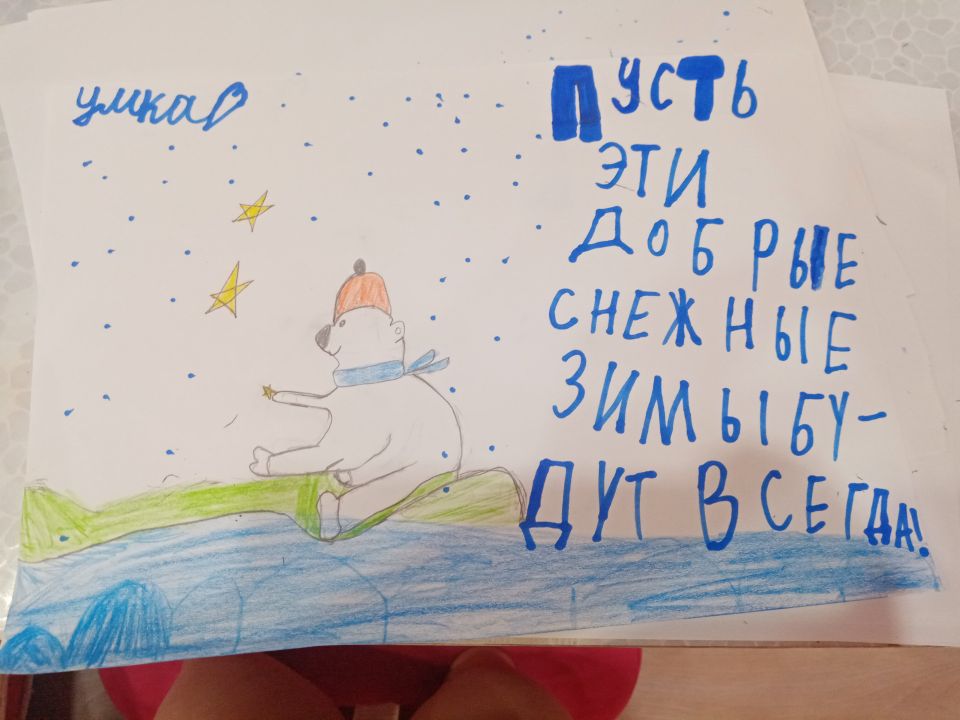 умка
ПУСТЬ
ЭТИ
ДОБРЫЕ
СНЕЖНЫЕ
ЗИМЫ БУ-
ДУТ ВСЕГДА!